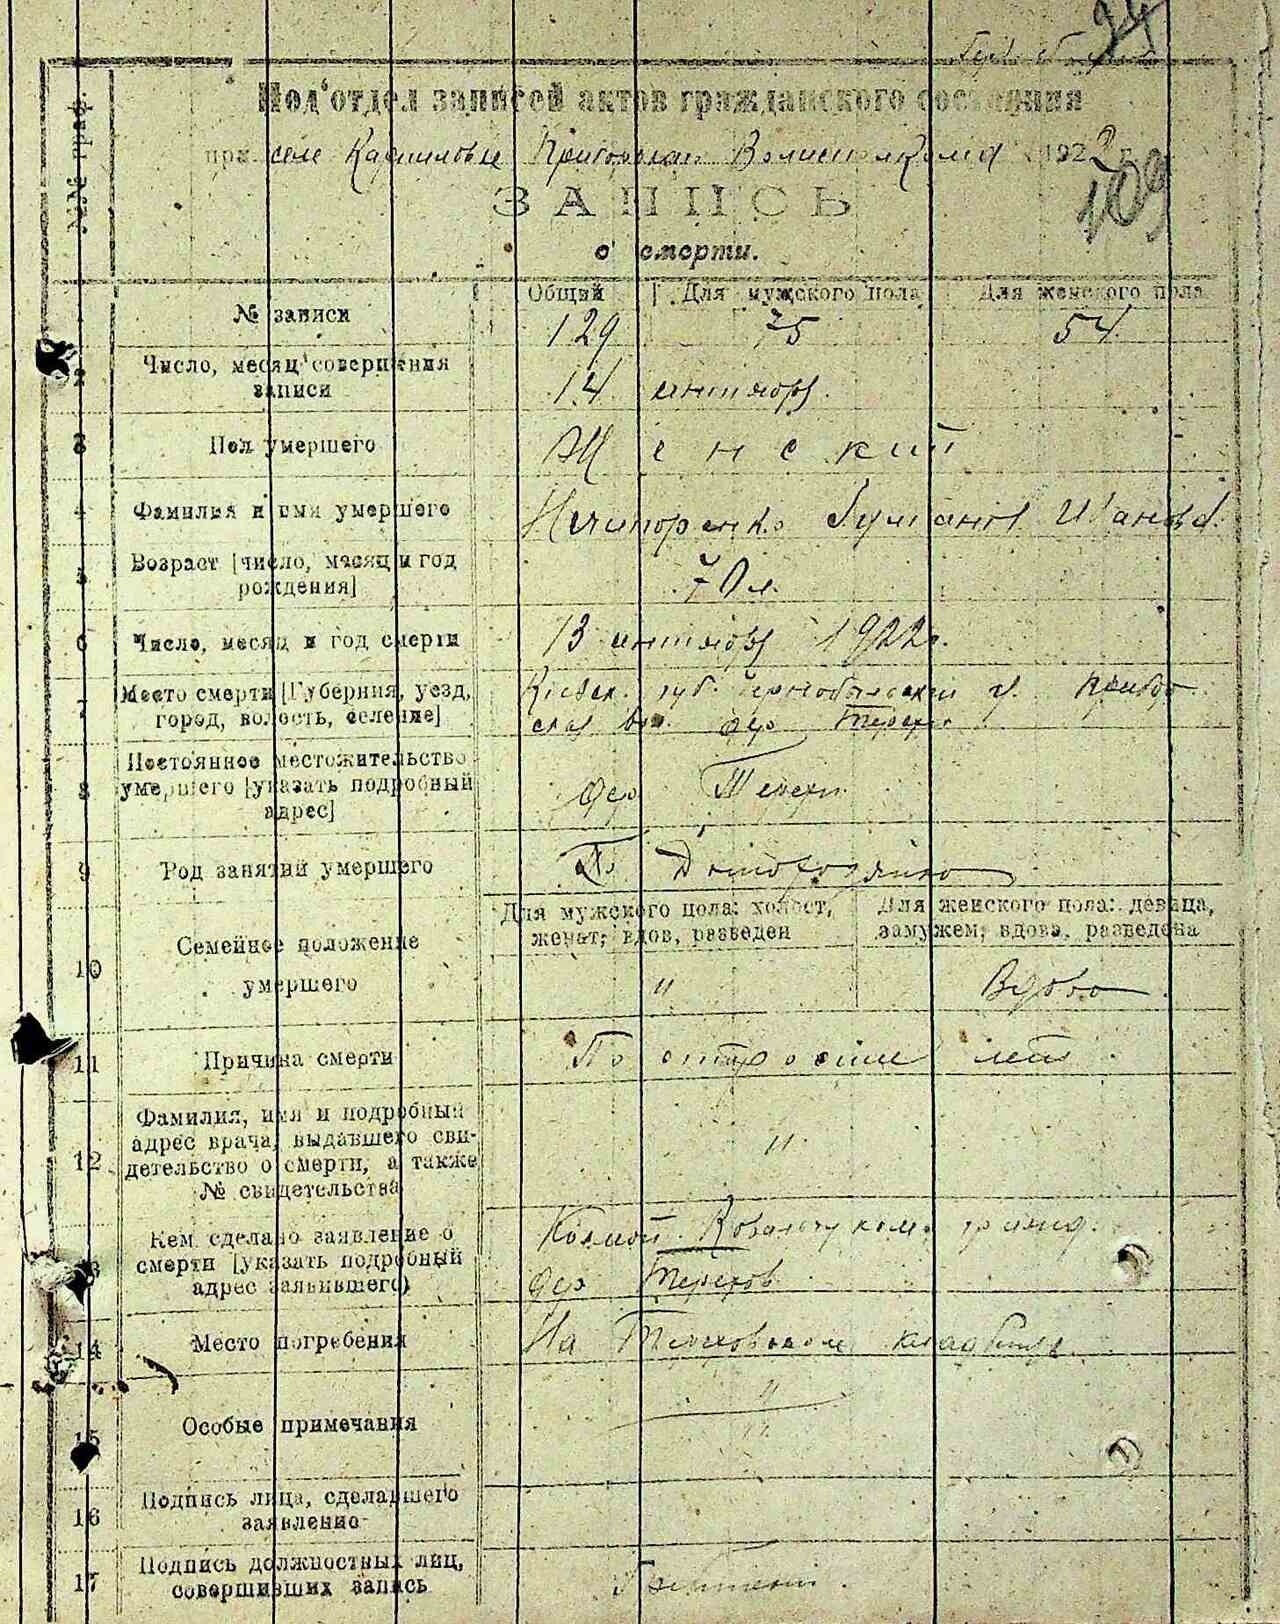 94
Под‘отдел записей актов гражданского состояния
при селе Волисполкома 1922 г.
109
ЗАПИСЬ
о смерти.
№№ граф.
Общий Для мужского пола Для женского пола
1 № записи 129 75 54
2 Число, месяц совершения
записи 14 сентября
3 Пол умершего Женский
4 Фамилия и имя умершего Нечипоренко Иванова
5 Возраст [число, масяц и год
рождения] 70 л.
6 Число, месяц и год смерти 13 сентября 1922 г.
7 Место смерти [Губерния, уезд, Киевск. губ. Чернобыльский у.
город, волость, селение] ская вол. дер Терехи
8 Постоянное местожительство
умершего [указать подробный дер Терехи
адрес]
9 Род занятий умершего Домохозяйка
Для мужского пола: холост, Для женского пола: девица,
женат; вдов, разведен замужем; вдова, разведена
10 Семейное положение
умершего " Вдова
11 Причина смерти По старости лет
12 Фамилия, имя и подробный
адрес врача, выдавшего сви-
детельство о смерти, а также "
№ свидетельства
13 Кем сделано заявление о Ковальчуком
смерти [указать подробный
адрес заявившего) дер Терехов
14 Место погребения На Тереховском кладбище
15 Особые примечания "
16 Подпись лица, сделавшего
заявление
17 Подпись должностных лиц,
совершивших запись